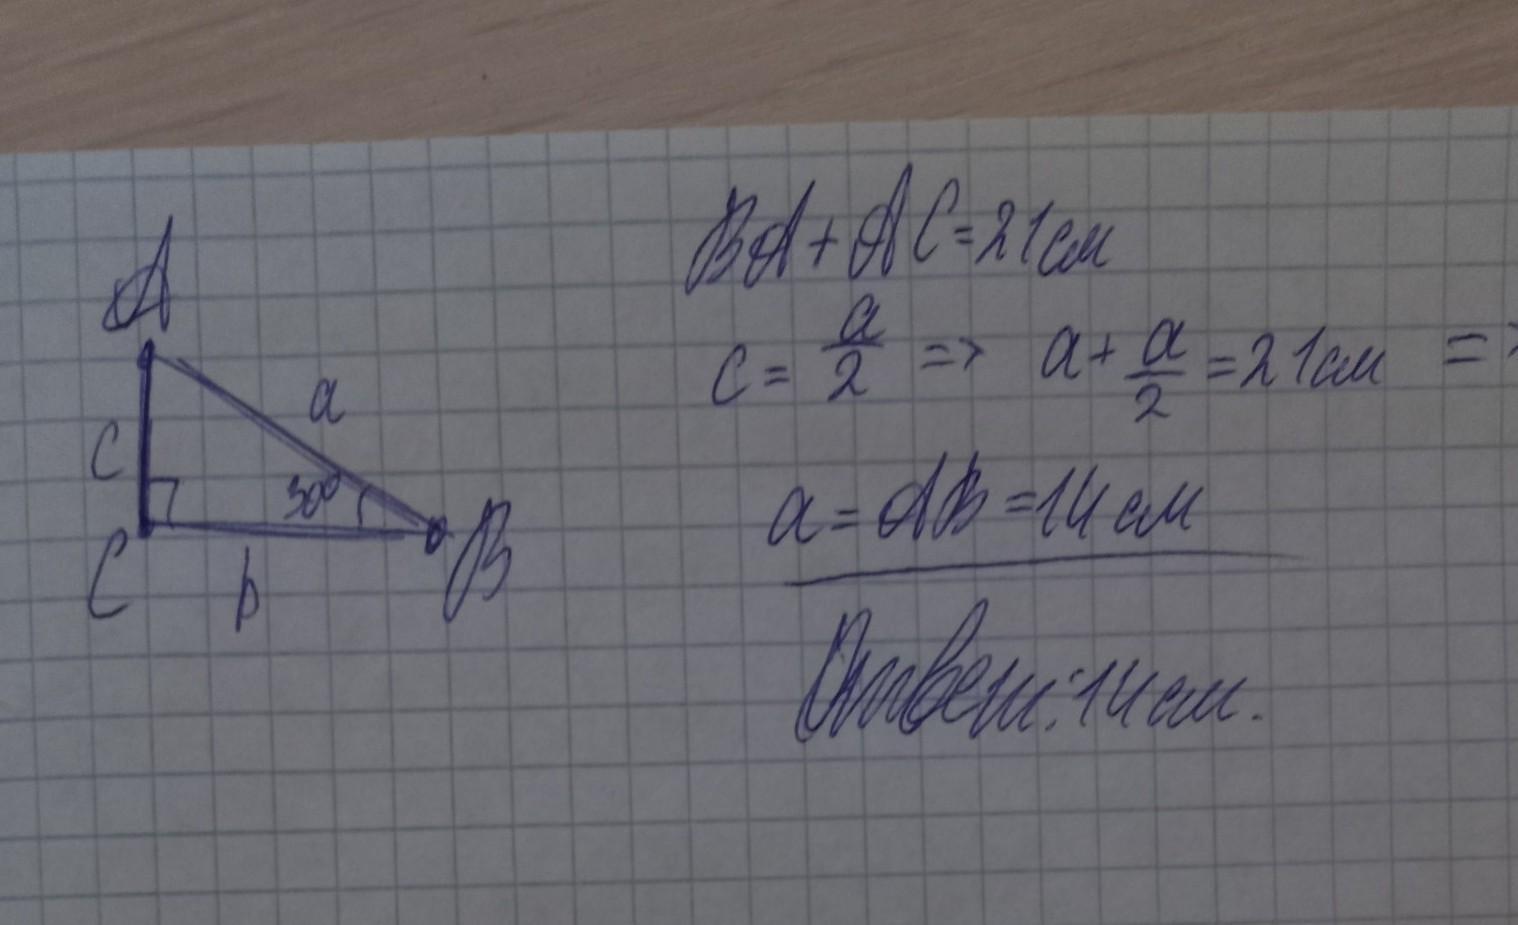 A
a
c
30°
C
b
B
BA + AC = 21 см
c = a/2 => a + a/2 = 21 см =>
a = AB = 14 см
Ответ: 14 см.